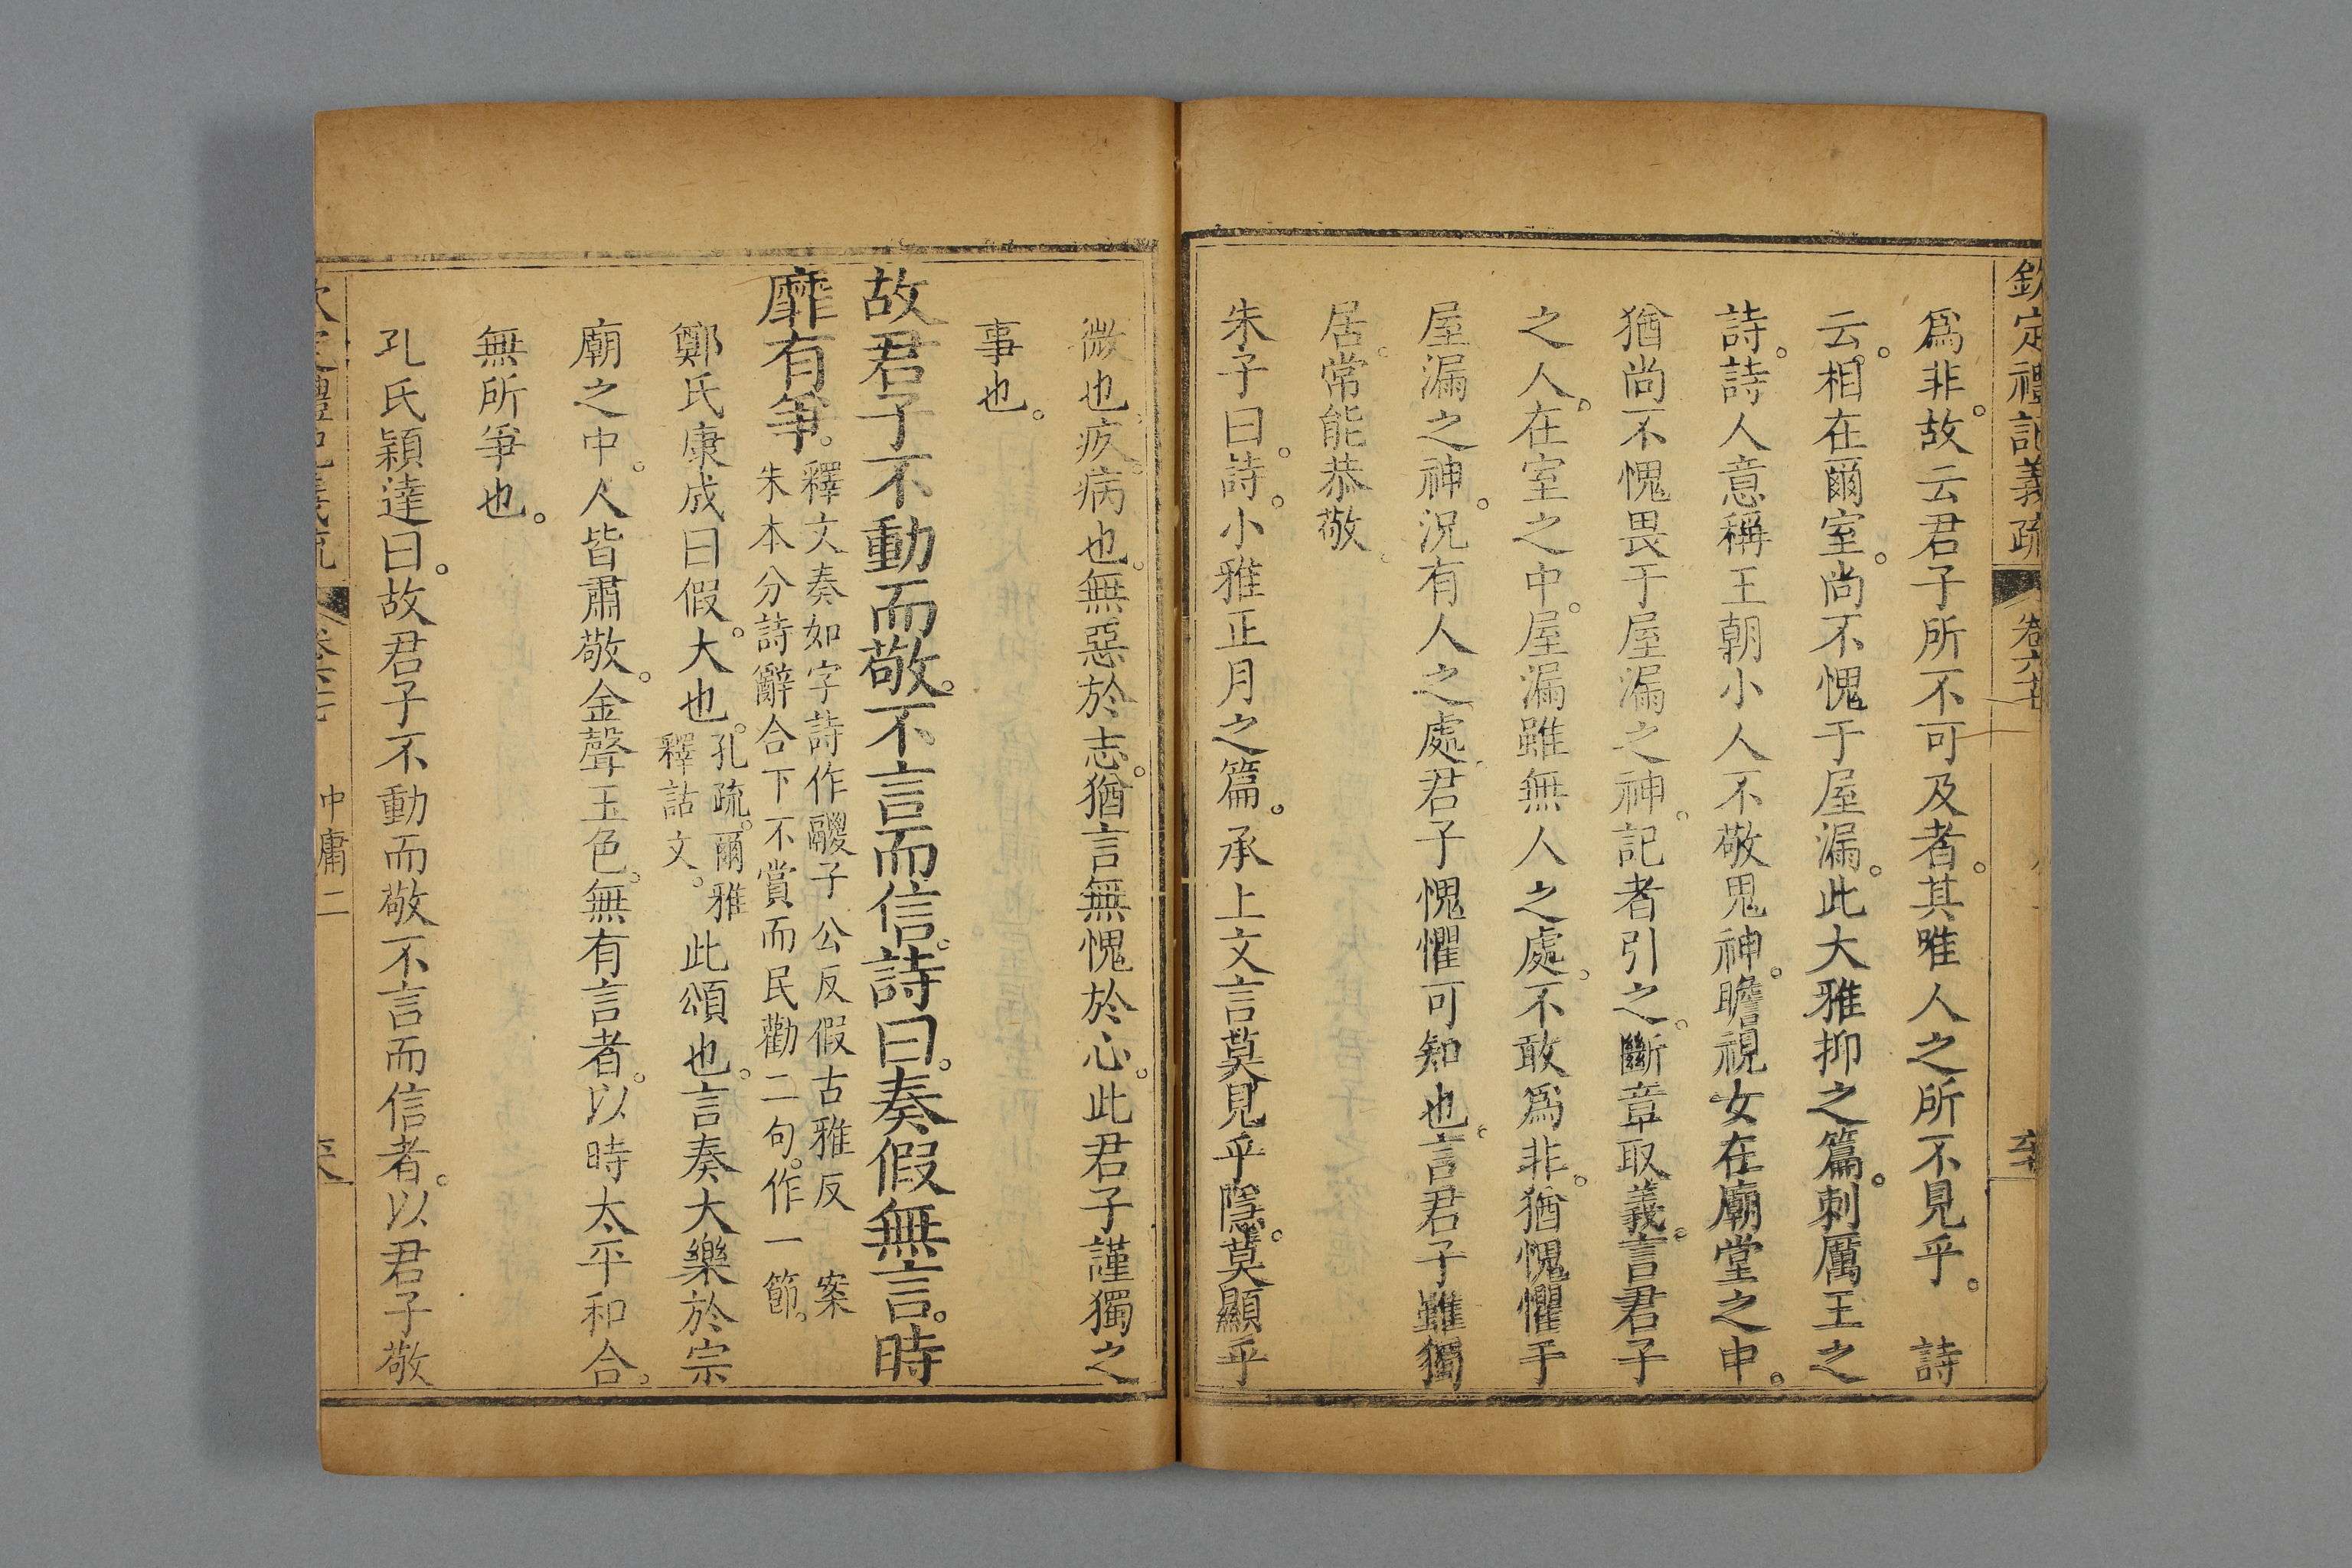 欽定禮記義疏 卷六十七
爲非。故云君子所不可及者。其唯人之所不見乎。 詩
云。相在爾室。尚不愧于屋漏。此大雅抑之篇。刺厲王之
詩。詩人意稱王朝小人不敬鬼神。瞻視女在廟堂之中。
猶尚不愧畏于屋漏之神。記者引之。斷章取義。言君子
之人。在室之中。屋漏雖無人之處。不敢爲非。猶愧懼于
屋漏之神。況有人之處。君子愧懼可知也。言君子雖獨
居。常能恭敬。
朱子曰。詩。小雅正月之篇。承上文言莫見乎隱。莫顯乎
微也。疚。病也。無惡於志。猶言無愧於心。此君子謹獨之
事也。
故君子不動而敬。不言而信。詩曰。奏假無言。時
靡有爭。釋文奏如字詩作鬷子公反假古雅反 案
朱本分詩辭合下不賞而民勸二句。作一節。
鄭氏康成曰假。大也。孔疏。爾雅
釋詁文。此頌也。言奏大樂於宗
廟之中。人皆肅敬。金聲玉色。無有言者。以時太平和合。
無所爭也。
孔氏穎達曰。故君子不動而敬不言而信者。以君子敬
中庸二